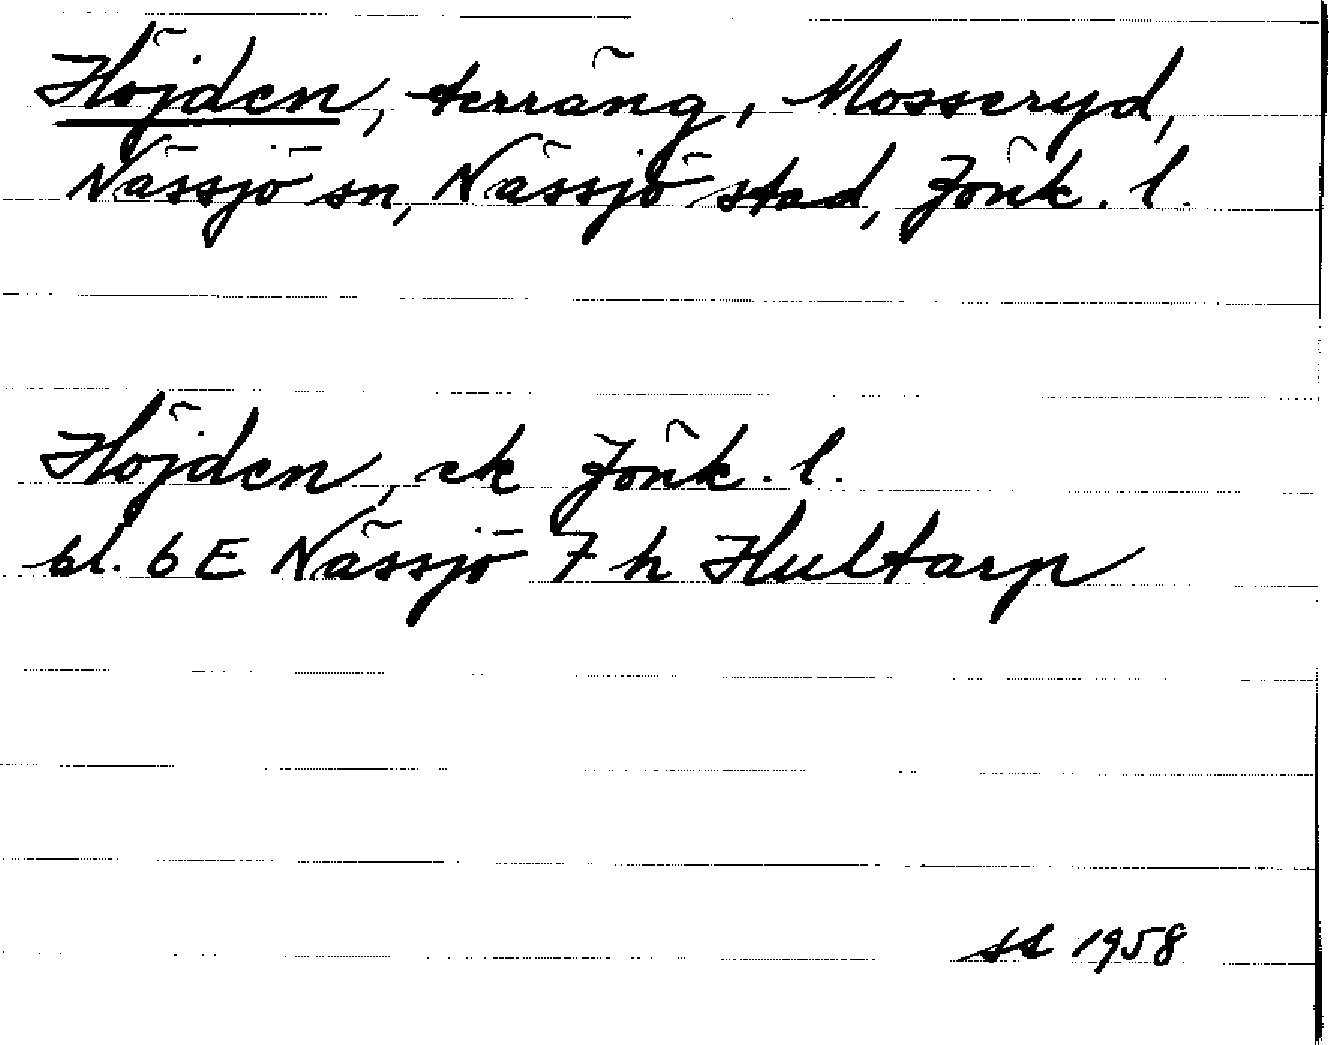 Höjden, terräng, Mosseryd,
Nässjö sn, Nässjö stad, Jönk. l.
Höjden, ek Jönk. l.
bl. 6 E Nässjö 7 h Hultarp
1958